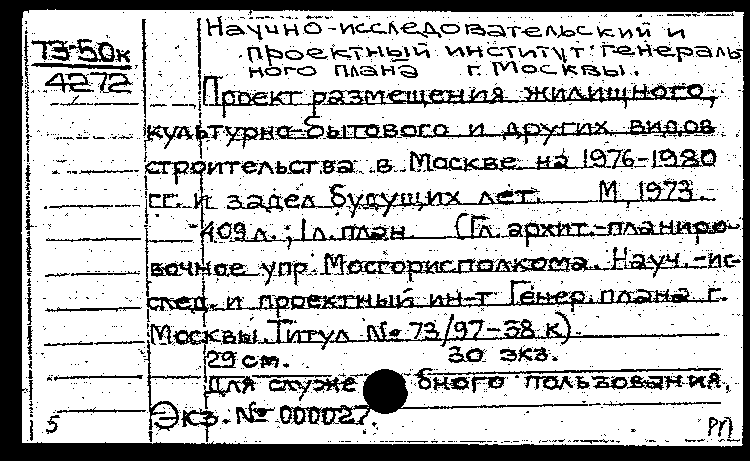 Научно-исследовательский и
73-50к
проектный институт генераль
4272
ного плана г. Москвы.
Проект размещения жилищного,
культурно-бытового и других видов
строительства в Москве на 1976-1980
гг. и задел будущих лет. М, 1973.
409 л.; 1 л. план. (Гл. архит.-планиро-
вочное упр. Мосгорисполкома. Науч.-ис-
след. и проектный ин-т Генер. плана г.
Москвы. Титул № 73/97-38 к).
29 см. 30 экз.
Для служебного пользования,
Экз. № 000027.
5 РП